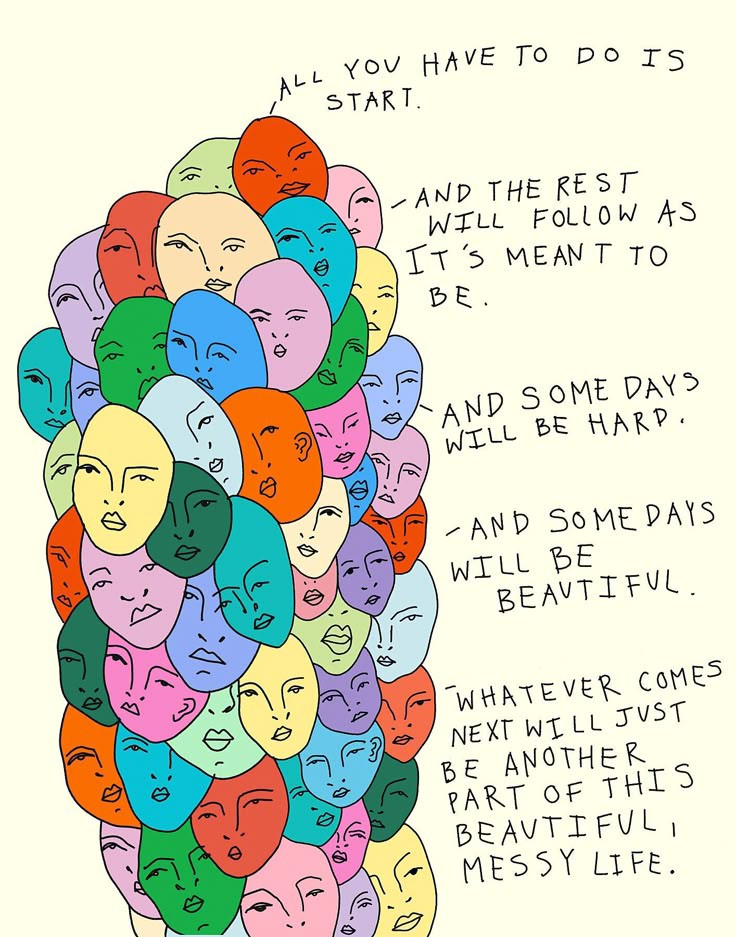 ALL YOU HAVE TO DO IS
START.
-AND THE REST
WILL FOLLOW AS
IT'S MEANT TO
BE.
AND SOME DAYS
WILL BE HARD.
-AND SOME DAYS
WILL BE
BEAUTIFUL.
-WHATEVER COMES
NEXT WILL JUST
BE ANOTHER
PART OF THIS
BEAUTIFUL,
MESSY LIFE.